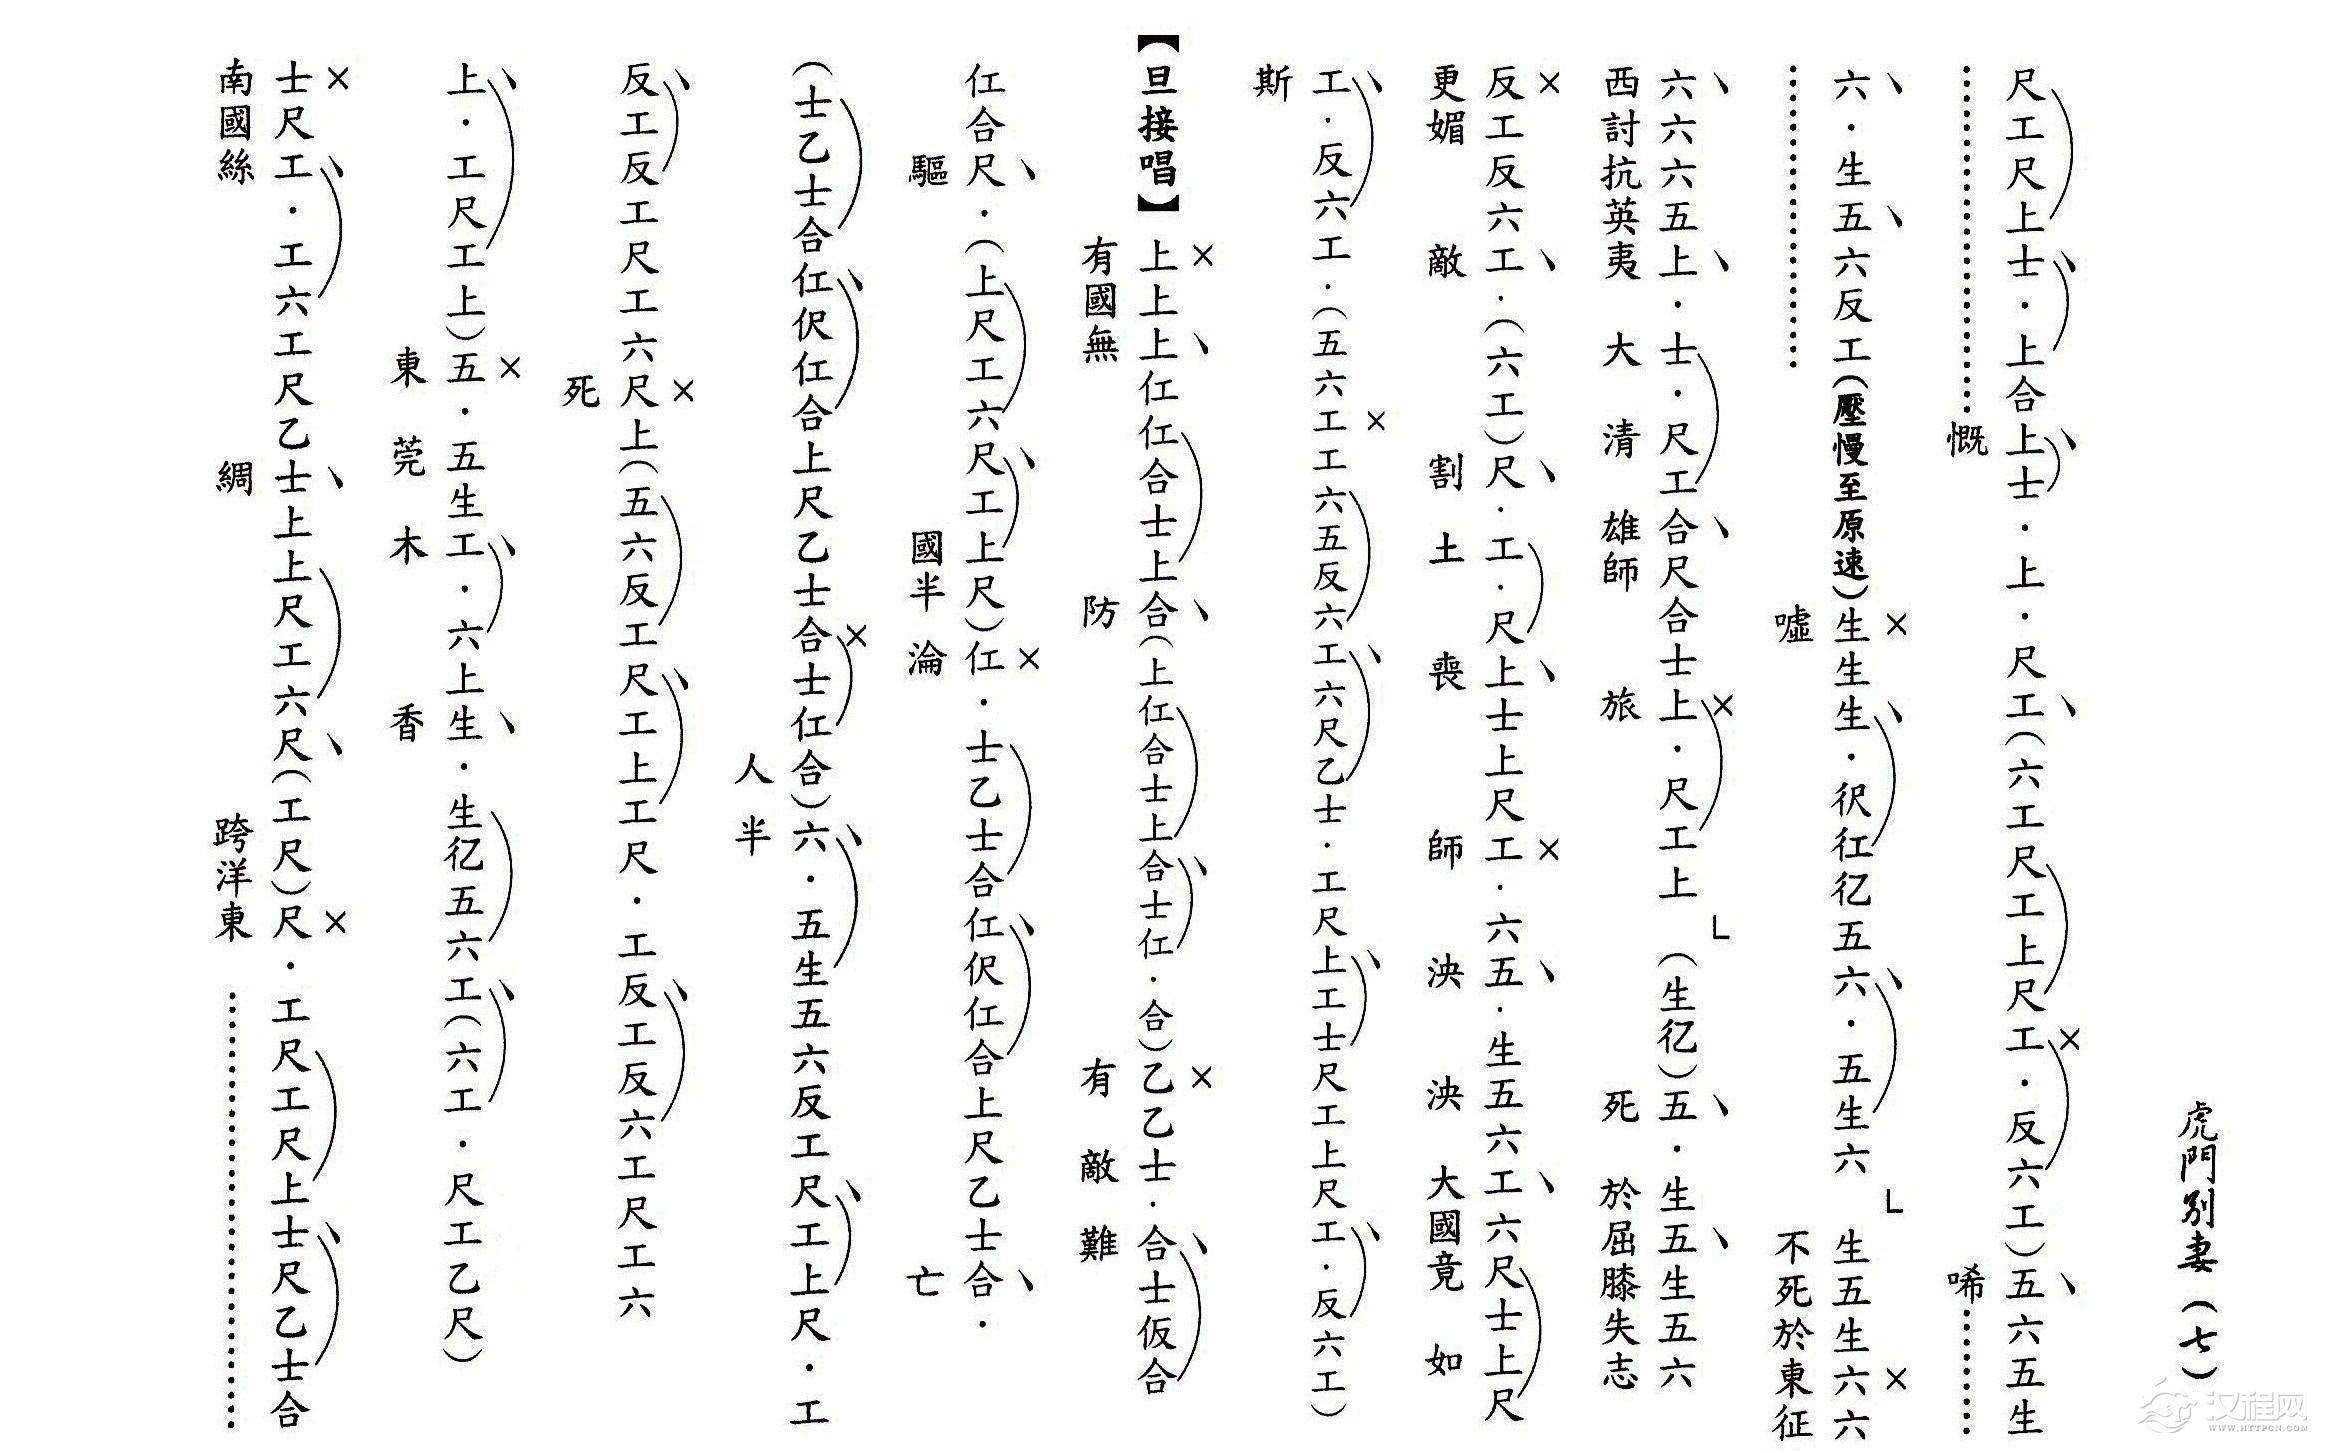 虎門别妻(七)
尺工尺上士·上合上士·上·尺工(六工尺工上尺工·反六工)五六五生
………慨 唏………
六·生五六反工(壓慢至原速)生生生·彳尺彳工彳乙五六·五生六 └ 生五生六六
………噓 不死於東征
六六六五上·士·尺工合尺合士上·尺工上 └ (生彳乙)五·生五生五六
西討抗英夷 大清雄師旅 死於屈膝失志
反工反六工·(六工)尺·工·尺上士上尺工·六五·生五六工六尺士上尺
更媚敵 割土喪師 泱泱大國竟如
工·反六工·(五六工工六五反六工六尺乙士·工尺上工士尺工上尺工·反六工)
斯
【旦接唱】上上上仜仜合士上合(上仜合士上合士仜·合)乙乙士·合士仮合
有國無防 有敵難
仜合尺·(上尺工六尺工上尺)仜·士乙士合仜伬仜合上尺乙士合·
驅 國半淪亡
(士乙士合仜伬仜合上尺乙士合士仜合)六·五生五六反工尺工上尺·工
人半
反工反工尺工六尺上(五六反工尺工上工尺·工反工反六工尺工六
死
上·工尺工上)五·五生工·六上生·生彳乙五六工(六工·尺工乙尺)
東莞木香
士尺工·工六工尺乙士上上尺工六尺(工尺)尺·工尺工尺上士尺乙士合
南國絲綢 跨洋東………
汉程网
WWW.HTTPCN.COM